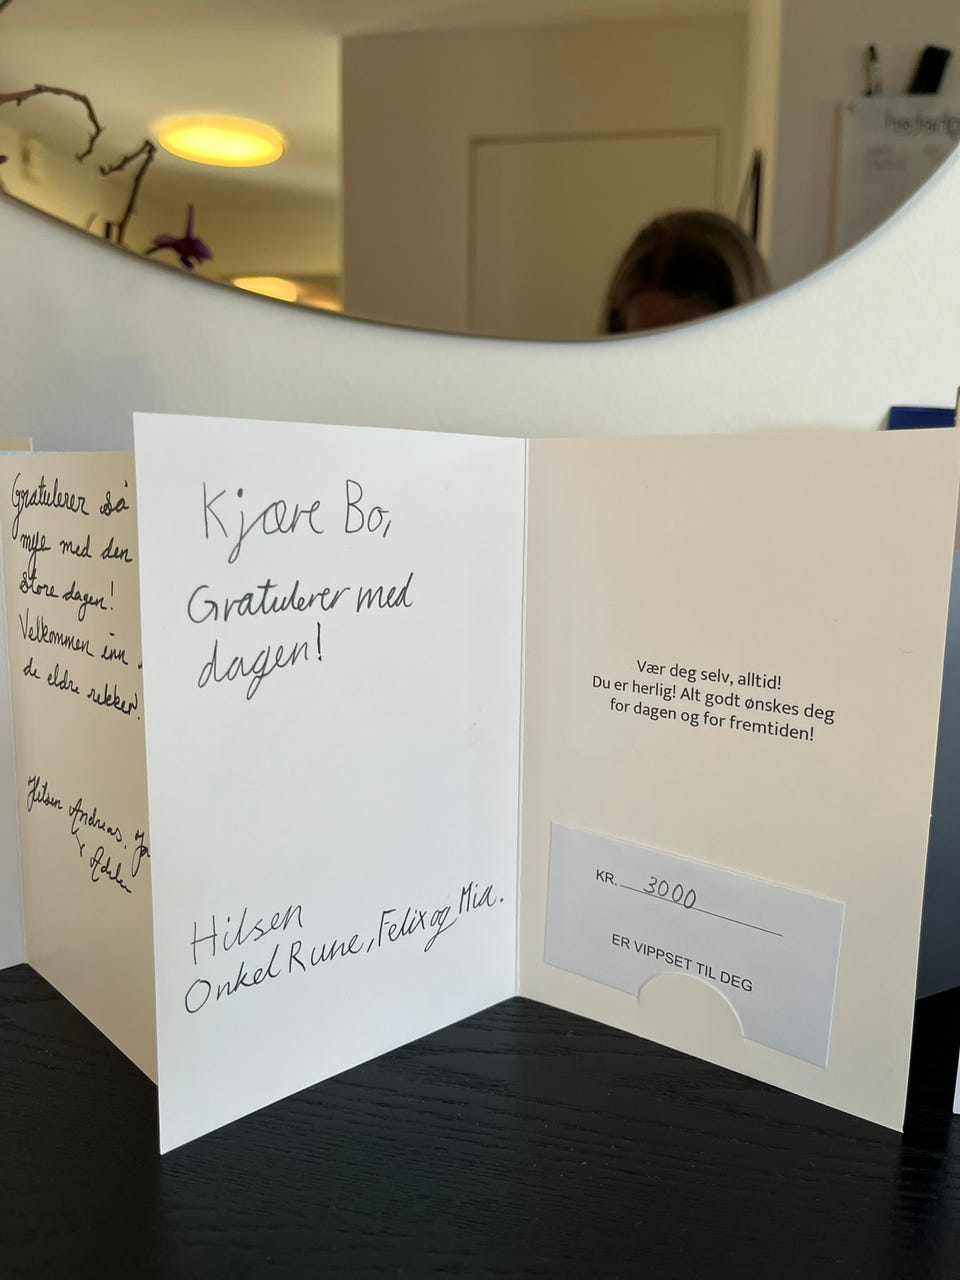 Gratulerer så
mye med den
store dagen!
Velkommen inn
de eldre rekker!
Hilsen Andreas,
Kjære Bo,
Gratulerer med
dagen!
Hilsen
Onkel Rune, Felix og Mia.
Vær deg selv, alltid!
Du er herlig! Alt godt ønskes deg
for dagen og for fremtiden!
KR. 3000
ER VIPPSET TIL DEG